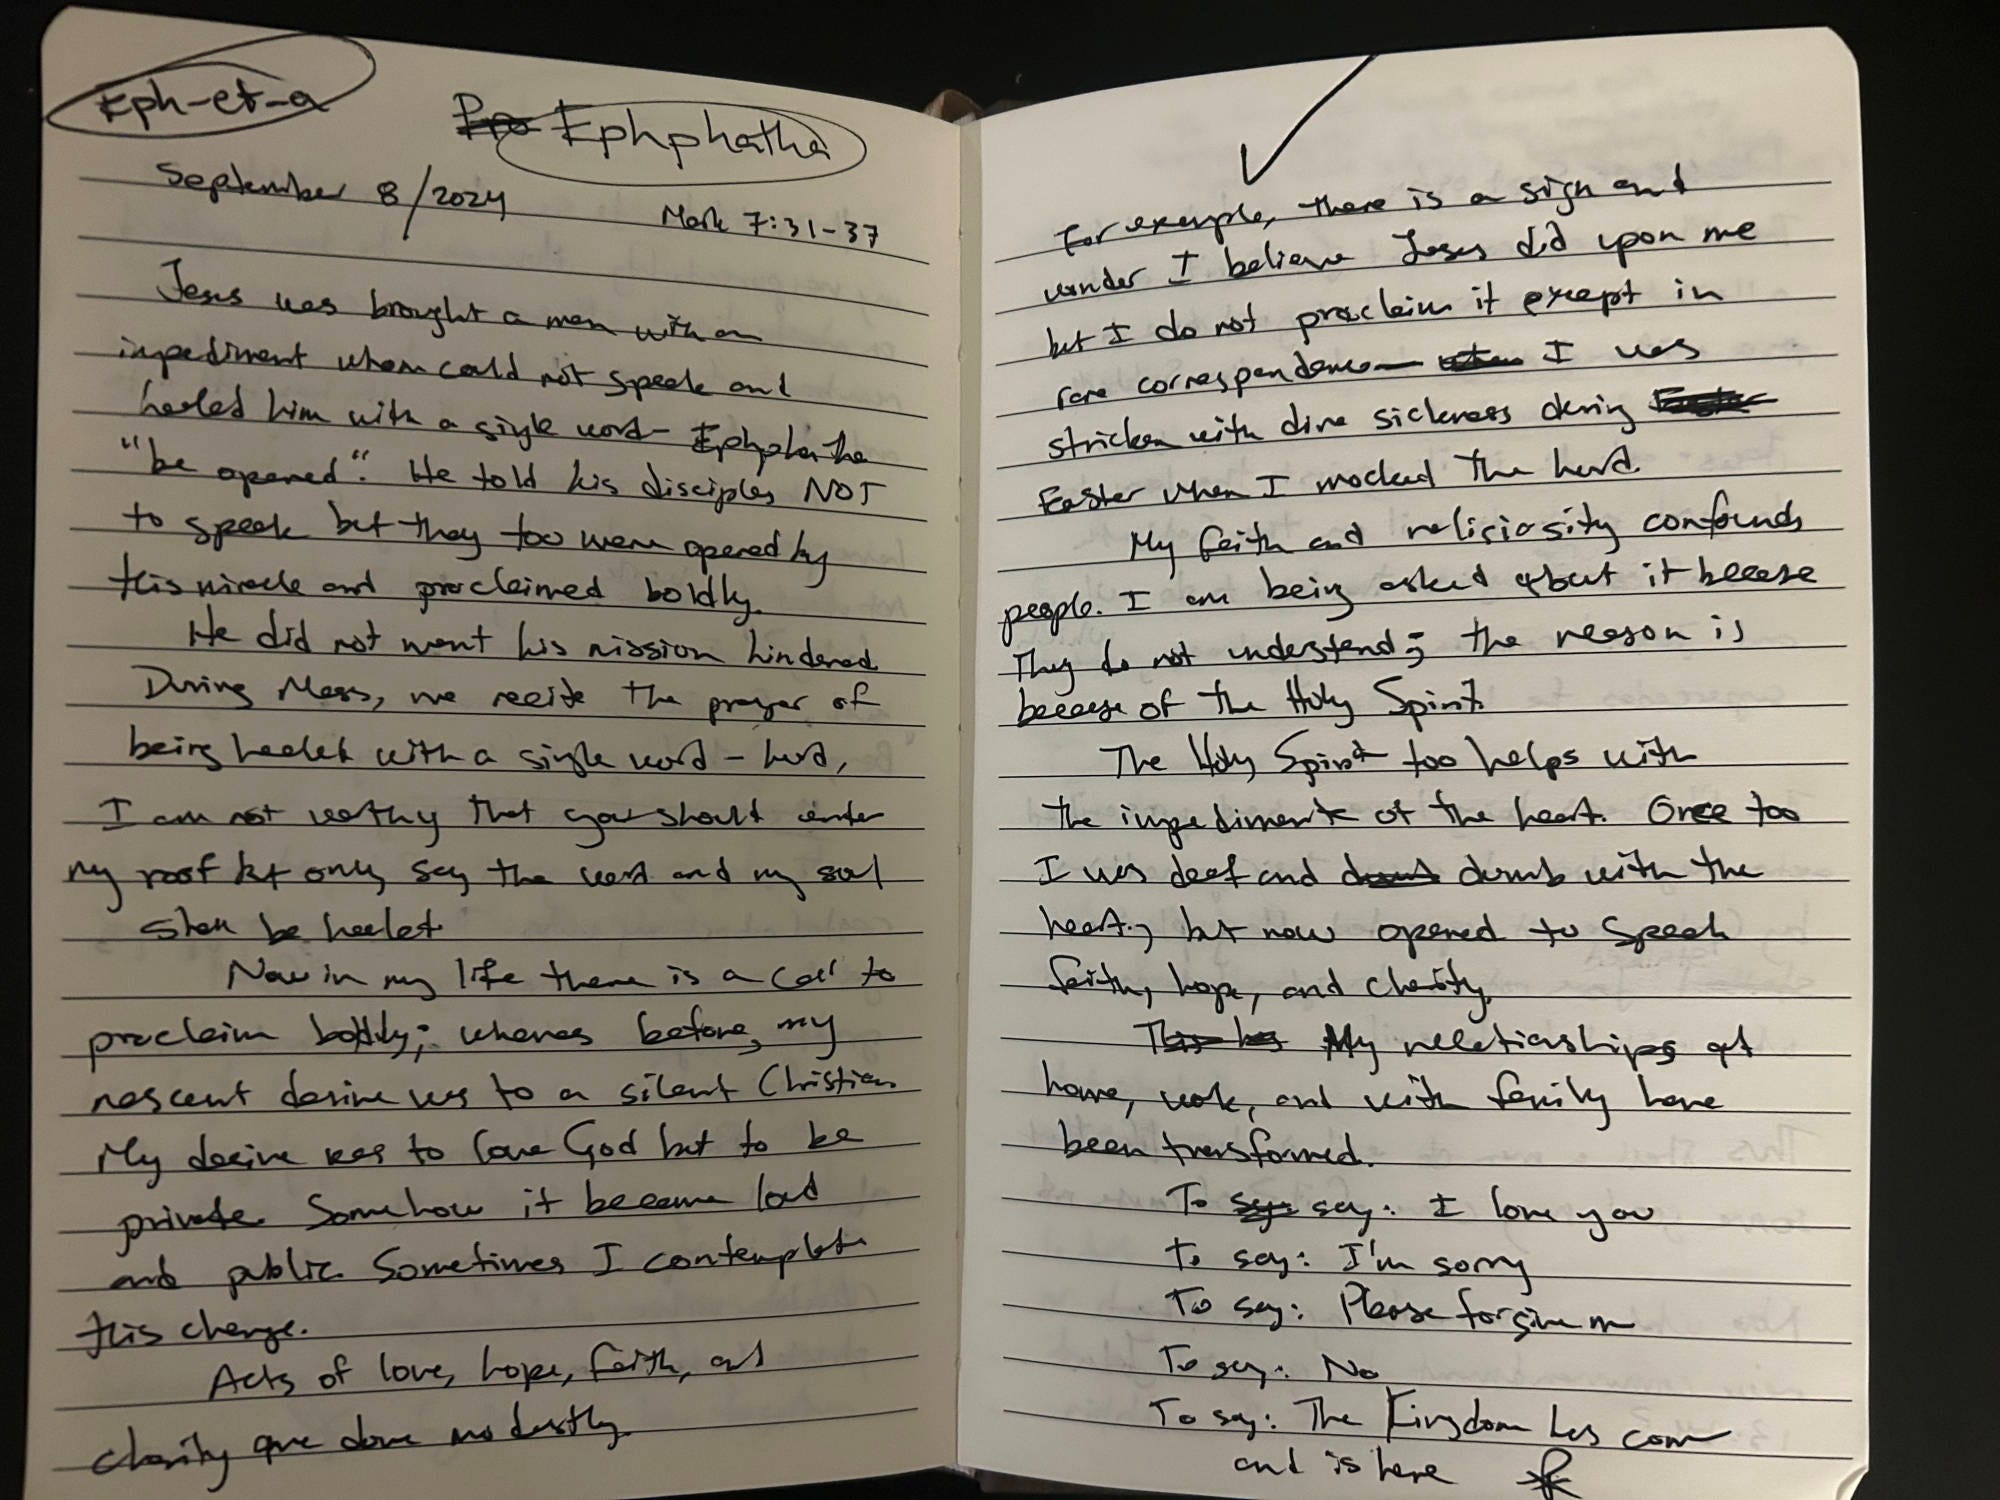 Eph-et-a
Ephphatha
September 8/2024
Mark 7:31-37
Jesus was brought a man with an
impediment whom could not speak and
healed him with a single word - Ephphatha
"be opened". He told his disciples NOT
to speak but they too were opened by
this miracle and proclaimed boldly.
He did not want his mission hindered
During Mass, we recite the prayer of
being healed with a single word - lord,
I am not worthy that you should enter
my roof but only say the word and my soul
shall be healed.
Now in my life there is a call to
proclaim boldly; whereas before, my
nascent desire was to a silent Christian
My desire was to love God but to be
private. Somehow it became loud
and public. Sometimes I contemplate
this change.
Acts of love, hope, faith, and
charity are done modestly.
For example, there is a sign and
wonder I believe Jesus did upon me
but I do not proclaim it except in
rare correspondence— I was
stricken with dire sickness during
Easter when I mocked the lord.
My faith and religiosity confounds
people. I am being asked about it because
They do not understand; the reason is
because of the Holy Spirit.
The Holy Spirit too helps with
the impediments of the heart. Once too
I was deaf and dumb with the
heart; but now opened to speak
faith, hope, and charity.
My relationships at
home, work, and with family have
been transformed.
To say: I love you
To say: I'm sorry
To say: Please forgive me
To say: No
To say: The Kingdom has come
and is here